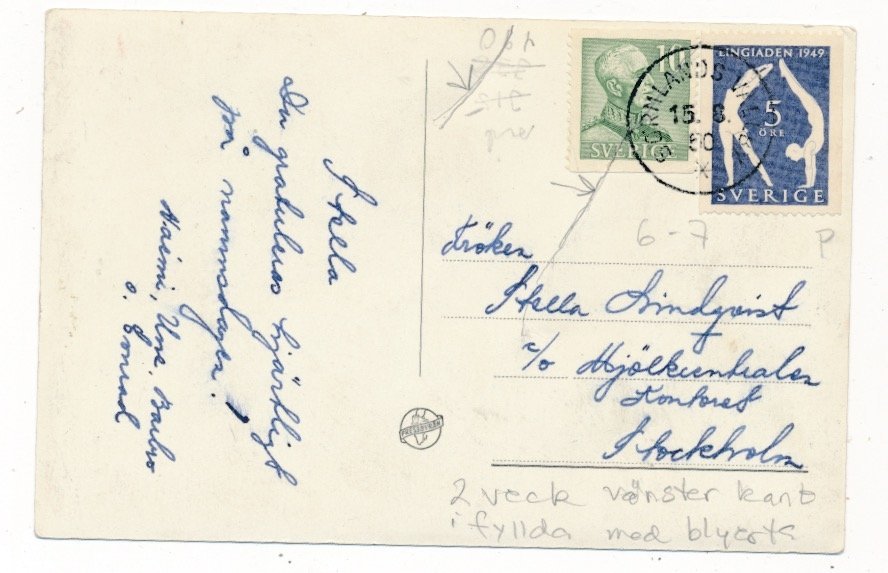 Stella
Du gratuleras hjärtligt
på namnsdagen!
Haimi, Une, Barbro
o. Conrad
190
pres
10
SVERIGE
LINGIADEN 1949
5
ÖRE
SVERIGE
SÖRMLANDS VÅRBY
15. 8.
50
6-7
P
Fröken
Stella Lindqvist
c/o Mjölkcentralen
Kontoret
Stockholm
PRESSBYRÅN
2 veck vänster kant
ifyllda med blyerts